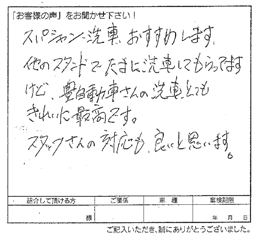 「お客様の声」をお聞かせ下さい!
スパシャン洗車、おすすめします。
他のスタンドでたまに洗車してもらってます
けど、豊自動車さんの洗車とても
きれいで最高です。
スタッフさんの対応も良いと思います。
紹介して頂ける方 ご関係 車種 車検期限
様 年 月 日
ご記入いただき、誠にありがとうございました。